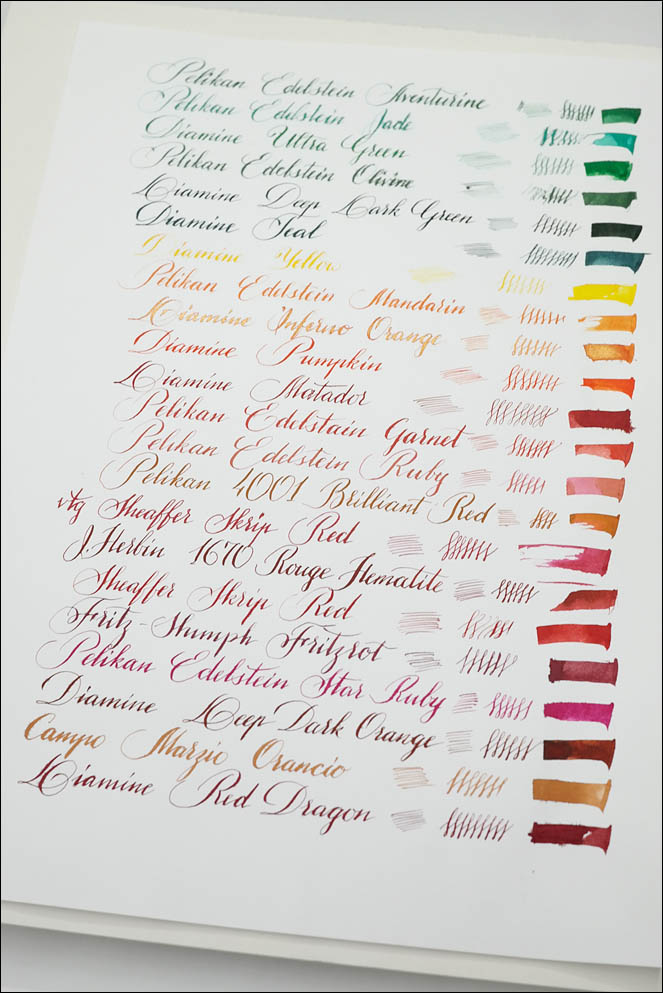 Pelikan Edelstein Aventurine
Pelikan Edelstein Jade
Diamine Ultra Green
Pelikan Edelstein Olivine
Diamine Deep Dark Green
Diamine Teal
Diamine Yellow
Pelikan Edelstein Mandarin
Diamine Inferno Orange
Diamine Pumpkin
Diamine Matador
Pelikan Edelstain Garnet
Pelikan Edelstein Ruby
Pelikan 4001 Brilliant Red
vtg Sheaffer Skrip Red
J.Herbin 1670 Rouge Hematite
Sheaffer Skrip Red
Fritz-Shumph Fritzrot
Pelikan Edelstein Star Ruby
Diamine Deep Dark Orange
Campo Marzio Orancio
Diamine Red Dragon